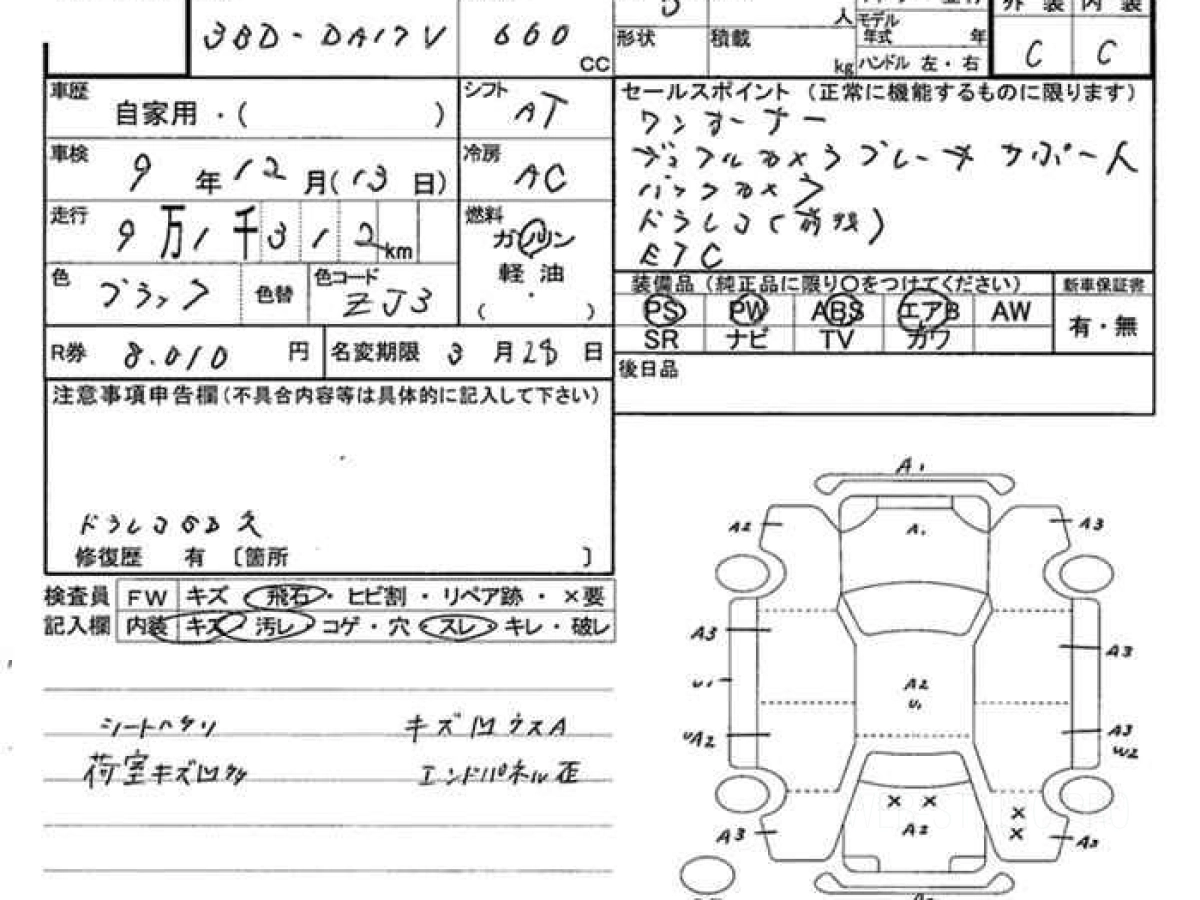 3BD-DA17V
660
CC
5
人
形状
積載
kg
モデル年式 年
ハンドル 左・右
外装 内装
C C
車歴 自家用・( )
シフト AT
セールスポイント（正常に機能するものに限ります）
ワンオーナー
デュアルカメラブレーキサポート
バックカメラ
ドラレコ(前後)
ETC
車検 9年12月(13日)
冷房 AC
走行 9万1千312km
燃料 ガソリン
軽油
・
( )
色 ブラック
色替
色コード ZJ3
装備品（純正品に限り〇をつけてください）
新車保証書
PS PW ABS エアB AW
有・無
SR ナビ TV カワ
R券 8.010 円
名変期限 3月28日
後日品
注意事項申告欄(不具合内容等は具体的に記入して下さい)
ドラレコSD欠
修復歴 有 〔箇所 〕
検査員 FW キズ 飛石・ヒビ割・リペア跡・×要
記入欄 内装 キズ 汚レ コゲ・穴・スレ・キレ・破レ
シートヘタリ
キズ凹ウスA
荷室キズ凹
エンドパネル歪
A1
A2 A1 A3
A3 A3
U1 A2
U1
UA2 A3
W2
× × ×
A3 A2 × A3